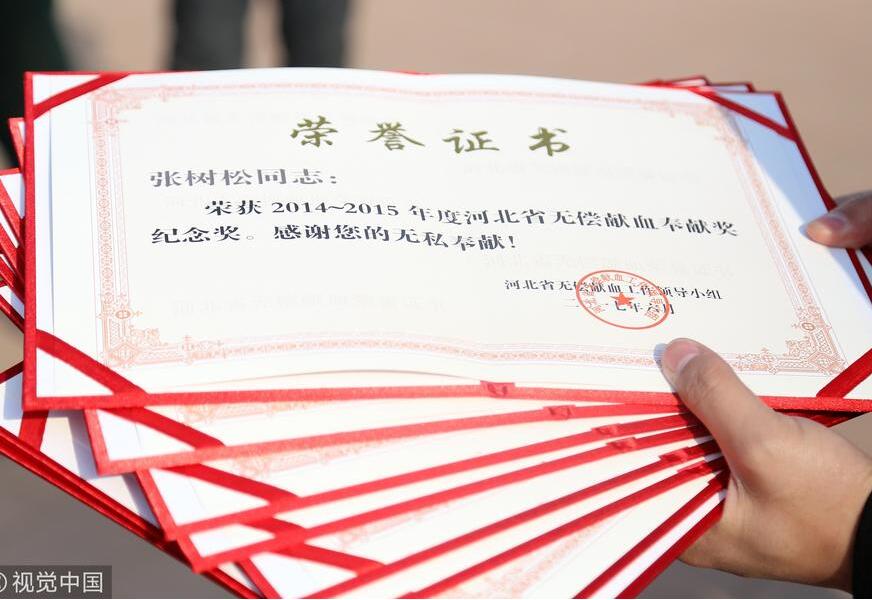 荣誉证书
张树松同志:
荣获 2014~2015 年度河北省无偿献血奉献奖
纪念奖。感谢您的无私奉献!
河北省无偿献血工作领导小组
二 一七年六月
视觉中国